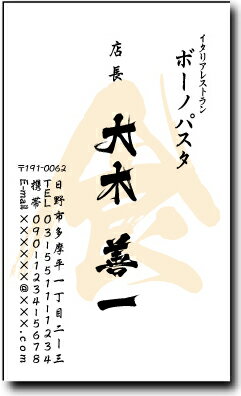 イタリアレストラン
ボーノパスタ
店長
大木善一
〒191-0062
日野市多摩平一丁目二ー三
TEL 03-5511-1234
携帯 090-1234-5678
E-mail xxxxxx@xxx.com